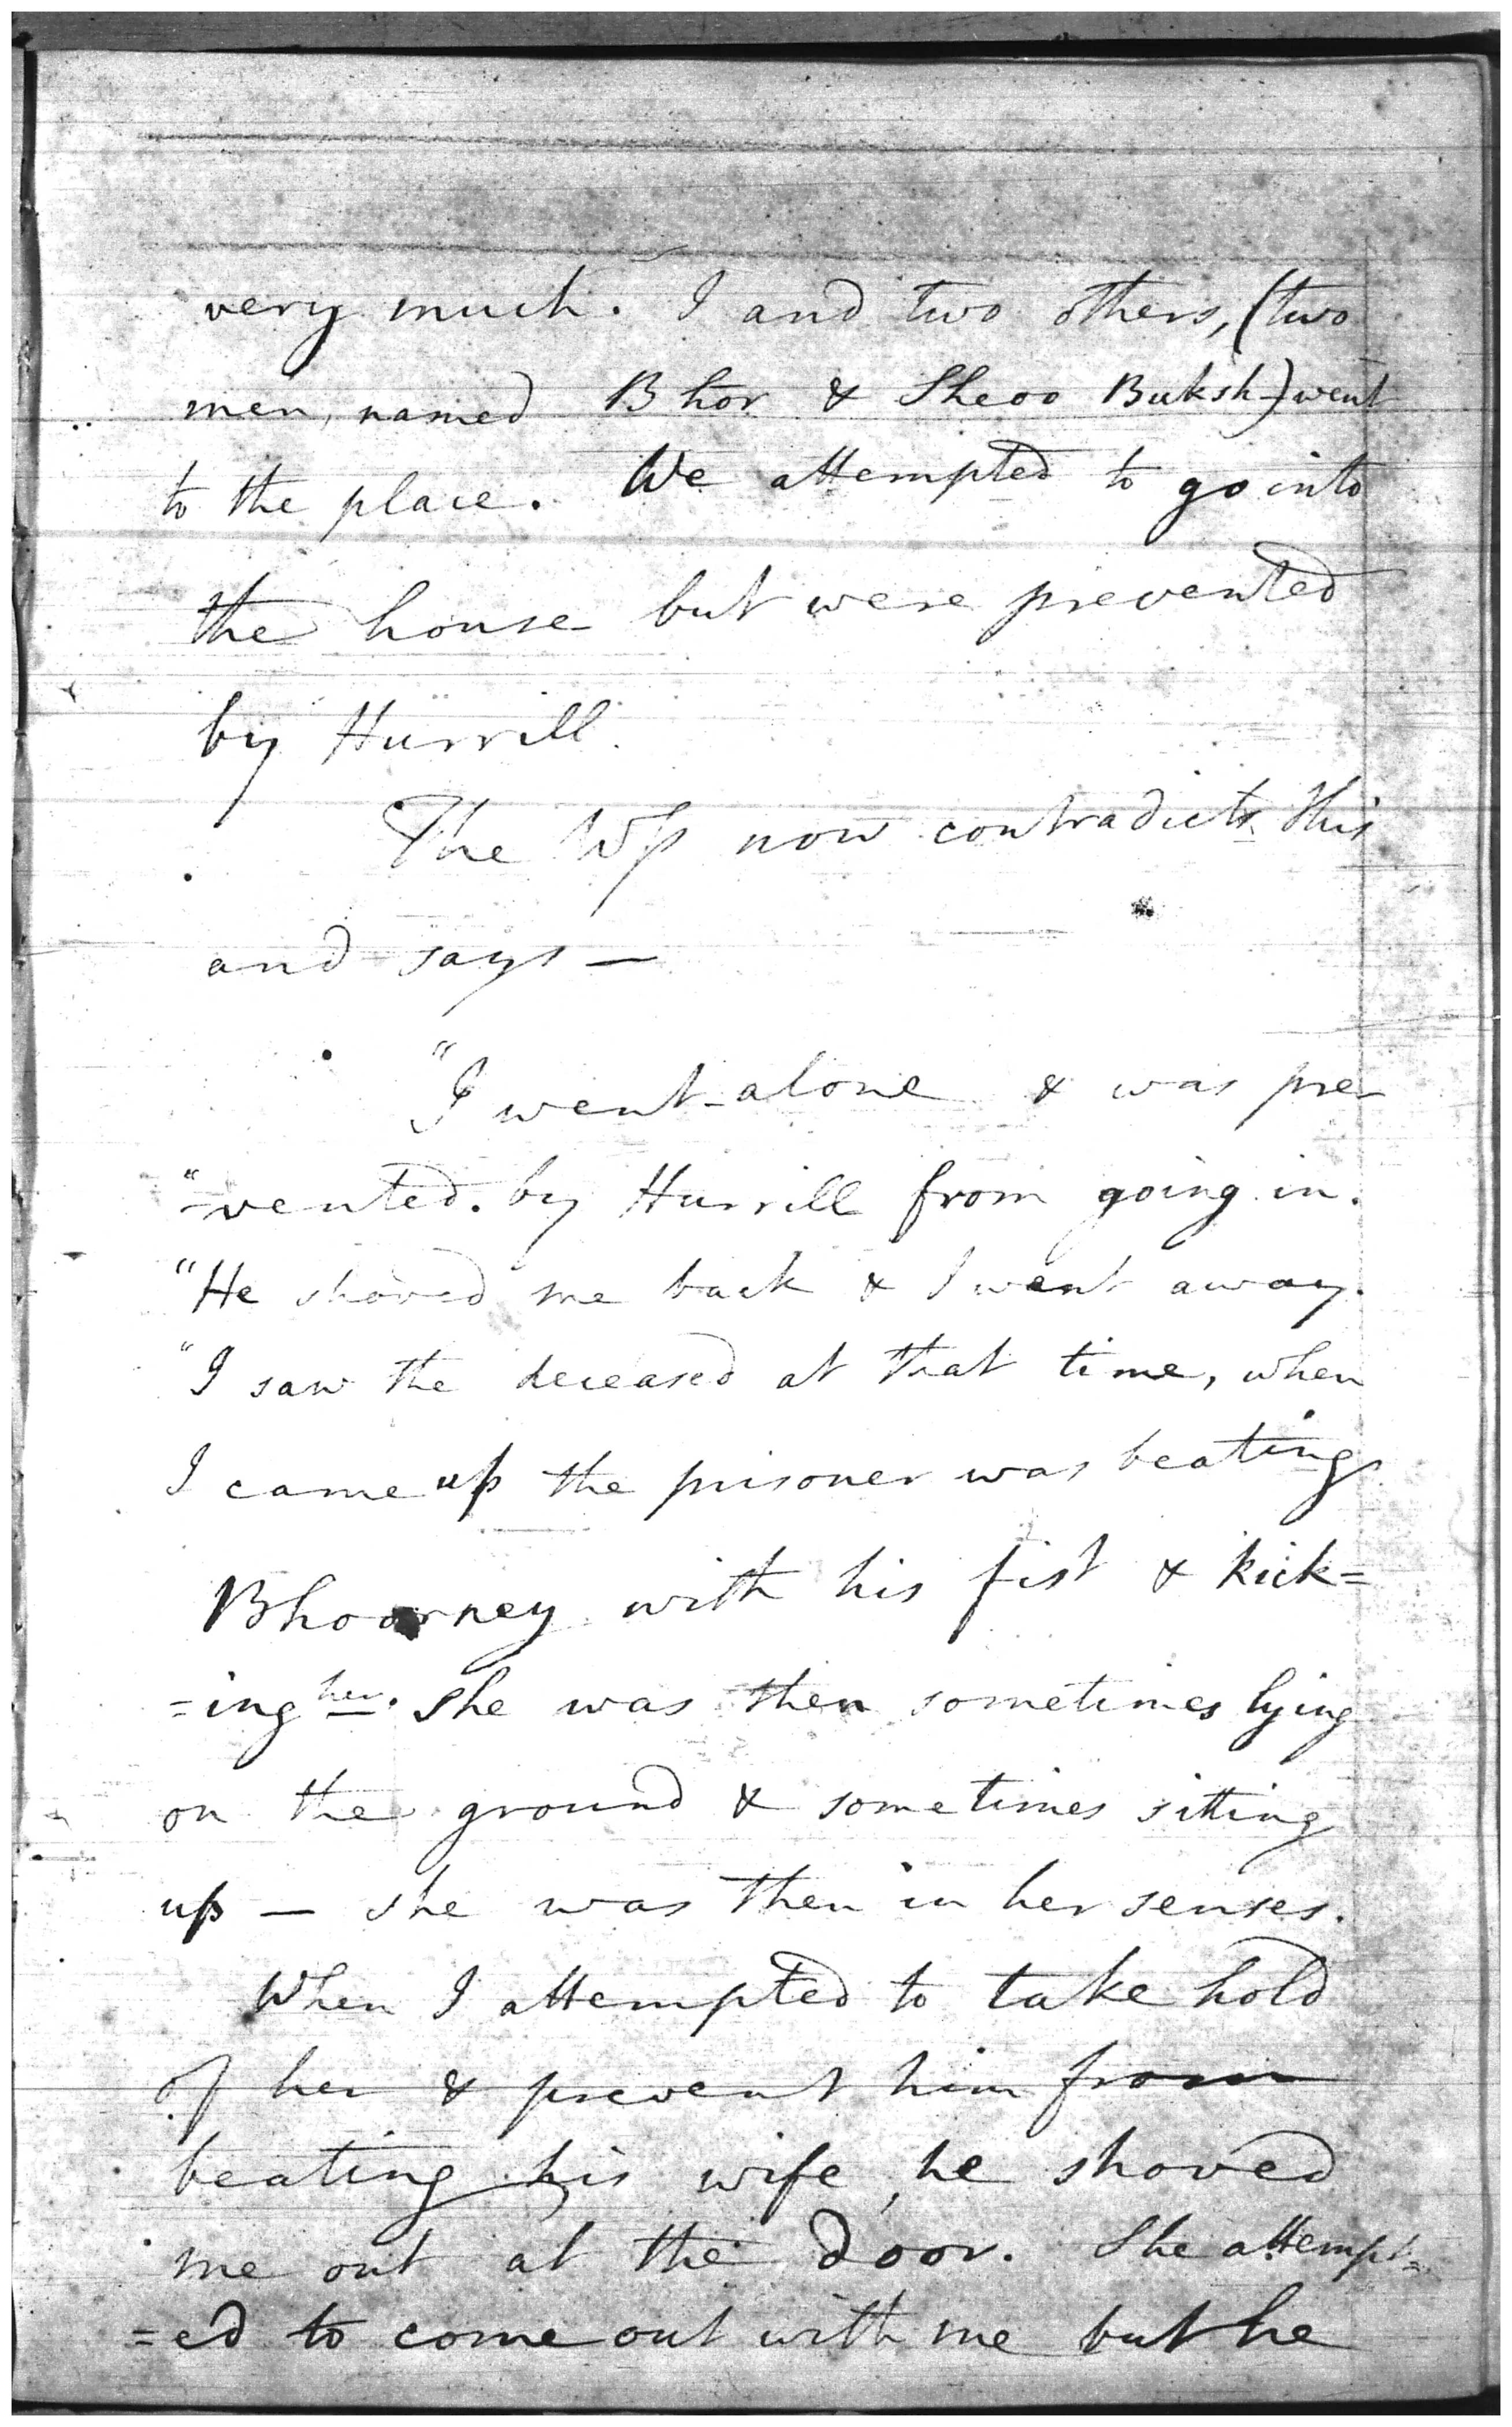 very much. I and two others, (two
men, named Bhor & Sheoo Buksh) went
to the place. We attempted to go into
the house but were prevented
by Hurrill.
The W/s now contradicts this
and says —
"I went alone & was pre-
"-vented. by Hurrill from going in.
"He shoved me back & I went away.
"I saw the deceased at that time, when
I came up the prisoner was beating
Bhoorney with his fist & kick=
=ing her. She was then sometimes lying
on the ground & sometimes sitting
up — she was then in her senses.
When I attempted to take hold
of her & prevent him from
beating his wife, he shoved
me out at the door. She attempt=
=ed to come out with me but he